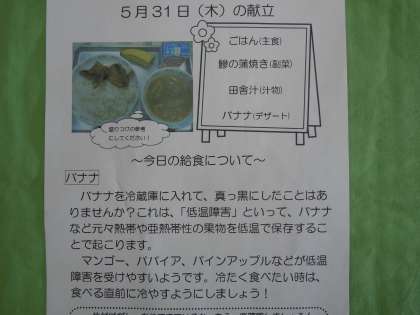 5月31日（木）の献立
ごはん(主食)
鰺の蒲焼き(副菜)
田舎汁(汁物)
バナナ(デザート)
盛りつけの参考
にしてください！
～今日の給食について～
バナナ
バナナを冷蔵庫に入れて、真っ黒にしたことはあ
りませんか？これは、「低温障害」といって、バナナ
など元々熱帯や亜熱帯性の果物を低温で保存するこ
とで起こります。
マンゴー、パパイア、パインアップルなどが低温
障害を受けやすいようです。冷たく食べたい時は、
食べる直前に冷やすようにしましょう！